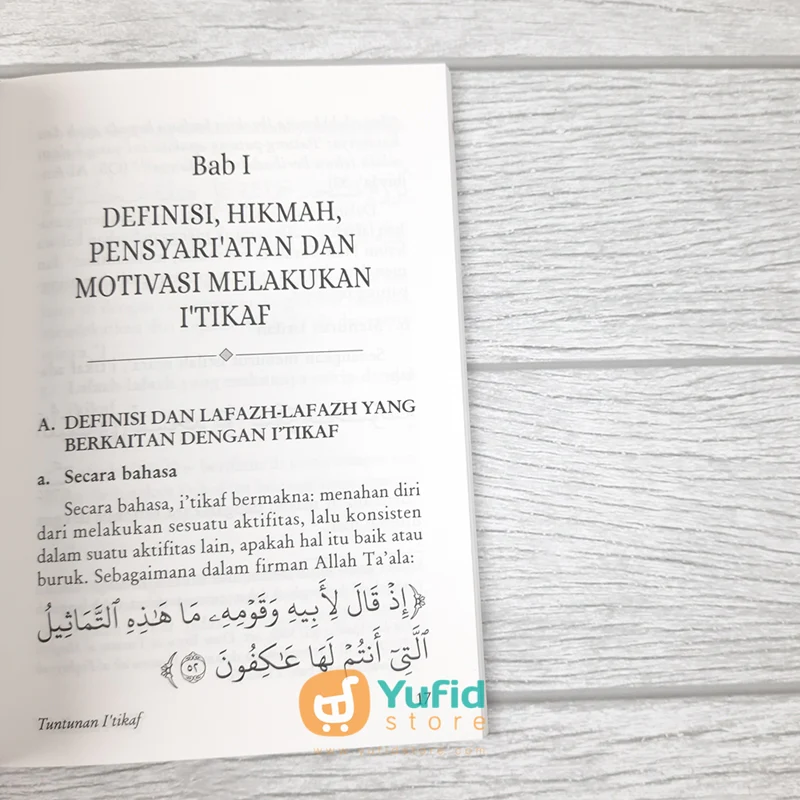 Bab I
DEFINISI, HIKMAH,
PENSYARI'ATAN DAN
MOTIVASI MELAKUKAN
I'TIKAF
A. DEFINISI DAN LAFAZH-LAFAZH YANG
BERKAITAN DENGAN I'TIKAF
a. Secara bahasa
Secara bahasa, i'tikaf bermakna: menahan diri
dari melakukan sesuatu aktifitas, lalu konsisten
dalam suatu aktifitas lain, apakah hal itu baik atau
buruk. Sebagaimana dalam firman Allah Ta'ala:
﴿إِذْ قَالَ لِأَبِيهِ وَقَوْمِهِۦ مَا هَـٰذِهِ ٱلتَّمَاثِيلُ
ٱلَّتِىٓ أَنتُمْ لَهَا عَـٰكِفُونَ ٥٢﴾
17
Tuntunan I'tikaf
Yufid
store